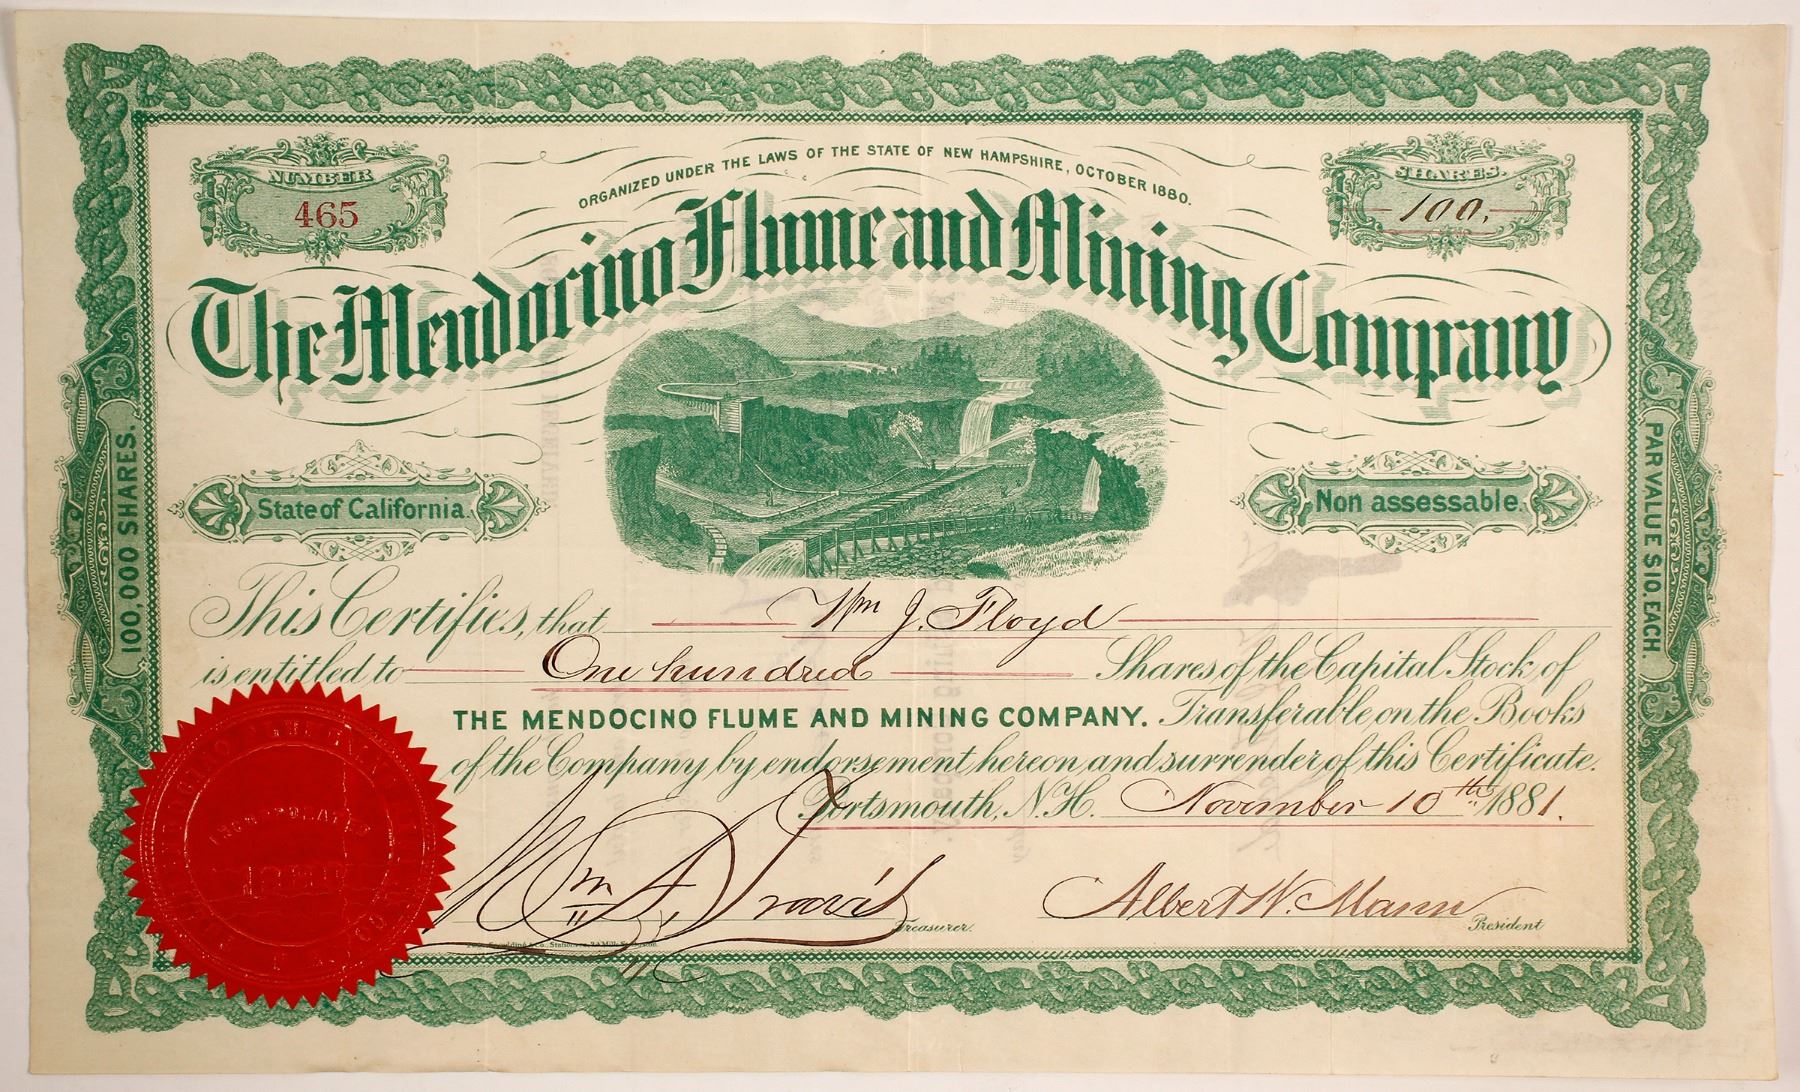 ORGANIZED UNDER THE LAWS OF THE STATE OF NEW HAMPSHIRE, OCTOBER 1880.
NUMBER
465
SHARES.
100.
The Mendocino Flume and Mining Company
State of California.
Non assessable.
100,000 SHARES.
PAR VALUE $10, EACH.
This Certifies, that Wm J. Floyd
is entitled to One hundred Shares of the Capital Stock of
THE MENDOCINO FLUME AND MINING COMPANY. Transferable on the Books
of the Company by endorsement hereon and surrender of this Certificate.
Portsmouth, N.H. November 10th 1881.
Wm A. Travis Treasurer.
Albert W. Mann President
INCORPORATED
1880